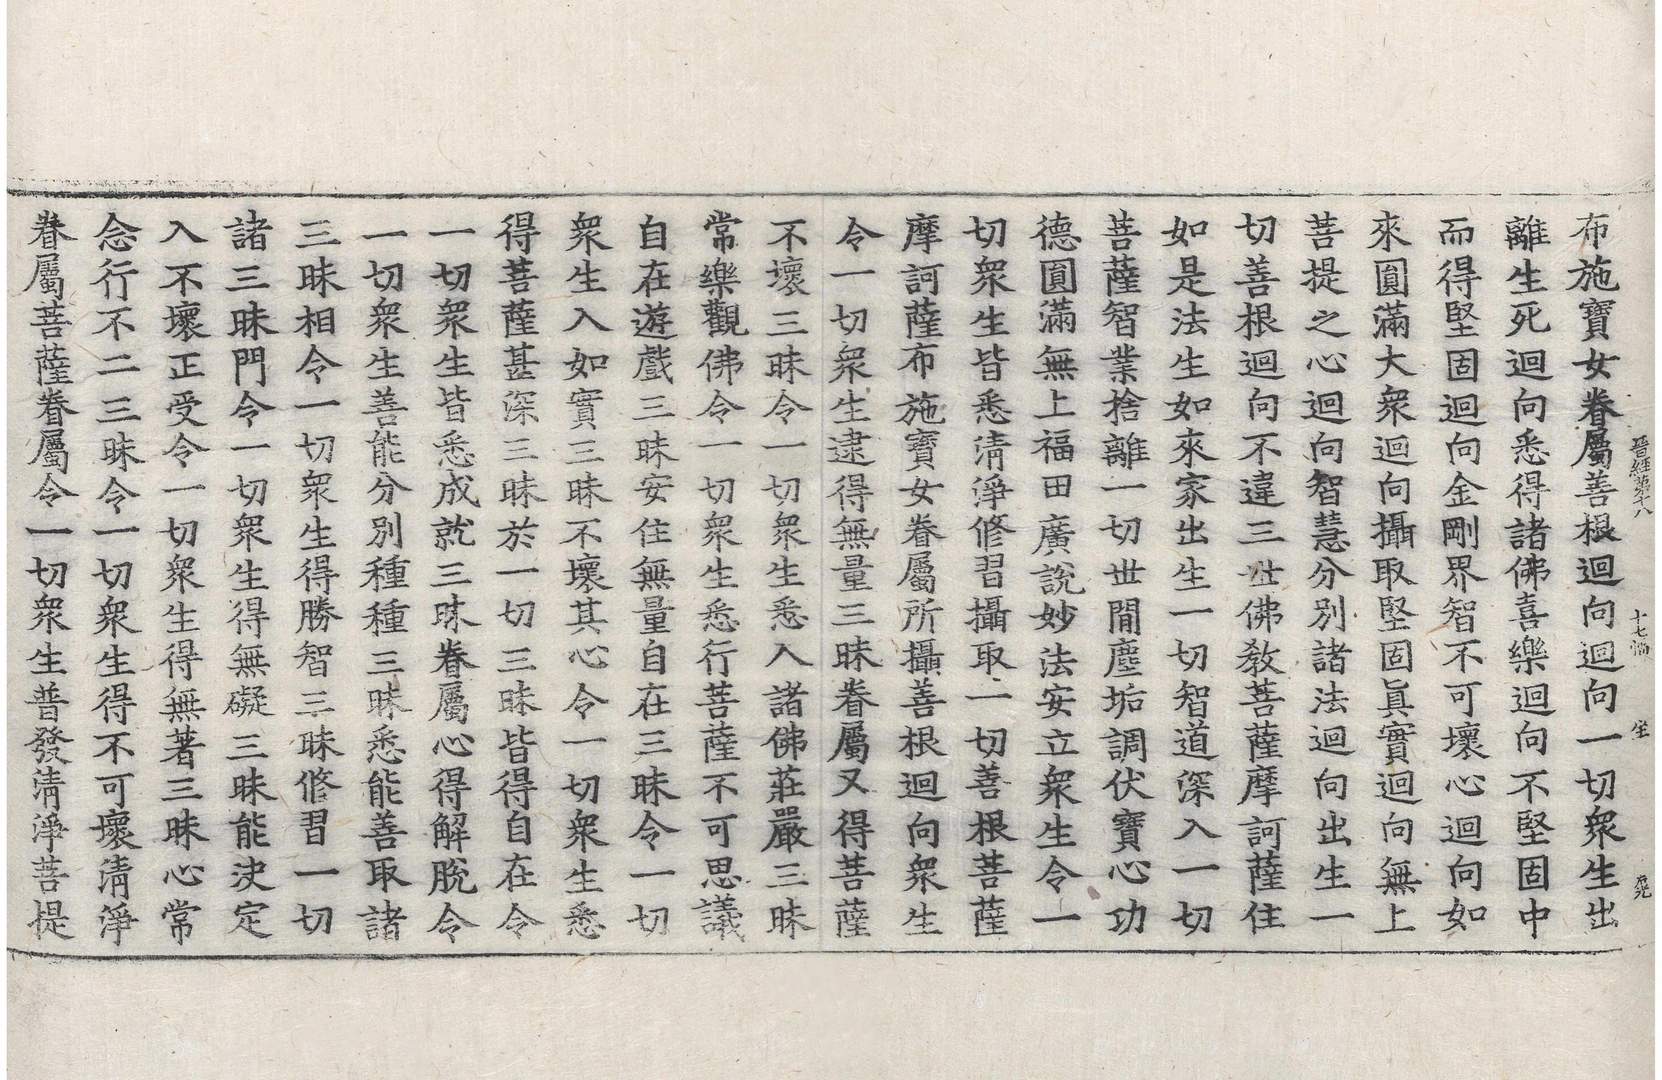 布施寶女眷屬善根迴向迴向一切衆生出
離生死迴向悉得諸佛喜樂迴向不堅固中
而得堅固迴向金剛界智不可壞心迴向如
來圓滿大衆迴向攝取堅固眞實迴向無上
菩提之心迴向智慧分別諸法迴向出生一
切善根迴向不違三世佛教菩薩摩訶薩住
如是法生如來家出生一切智道深入一切
菩薩智業捨離一切世間塵垢調伏寶心功
德圓滿無上福田廣說妙法安立衆生令一
切衆生皆悉清淨修習攝取一切善根菩薩
摩訶薩布施寶女眷屬所攝善根迴向衆生
令一切衆生逮得無量三昧眷屬又得菩薩
不壞三昧令一切衆生悉入諸佛莊嚴三昧
常樂觀佛令一切衆生悉行菩薩不可思議
自在遊戲三昧安住無量自在三昧令一切
衆生入如實三昧不壞其心令一切衆生悉
得菩薩甚深三昧於一切三昧皆得自在令
一切衆生皆悉成就三昧眷屬心得解脫令
一切衆生善能分別種種三昧悉能善取諸
三昧相令一切衆生得勝智三昧修習一切
諸三昧門令一切衆生得無礙三昧能決定
入不壞正受令一切衆生得無著三昧心常
念行不二三昧令一切衆生得不可壞清淨
眷屬菩薩眷屬令一切衆生普發清淨菩提
晉經第十八 十七 坐